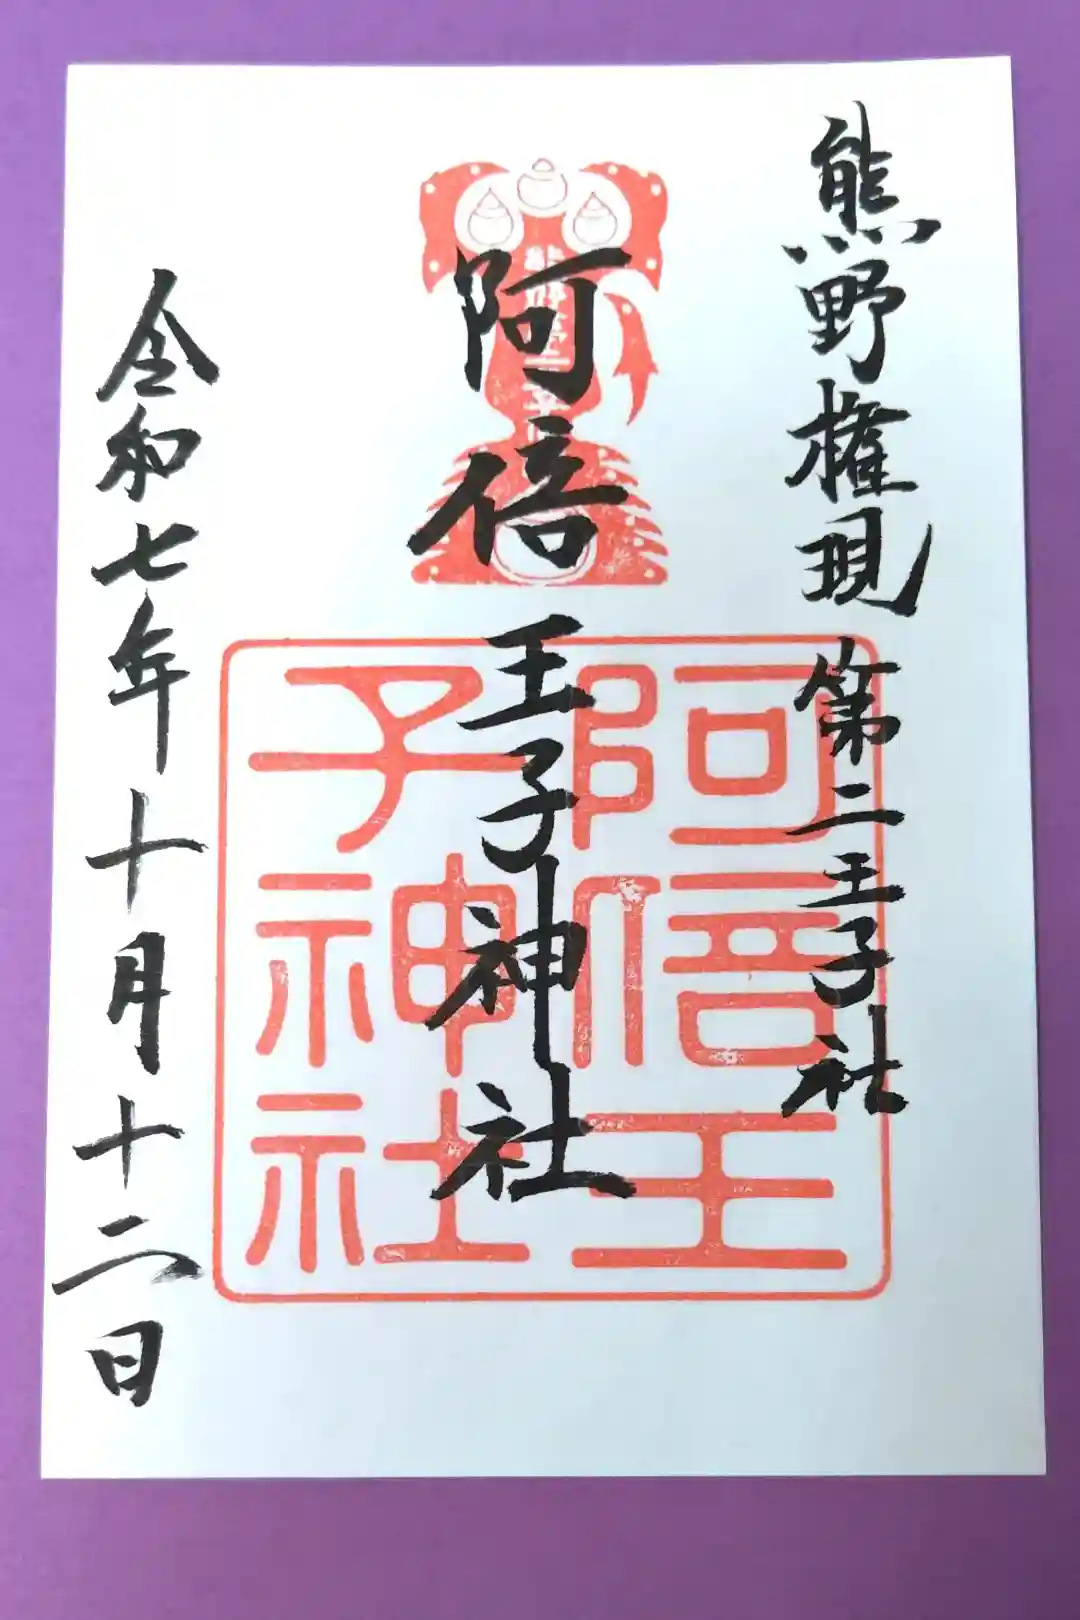 熊野権現第二王子社
阿倍王子神社
阿倍王子神社
令和七年十月十二日